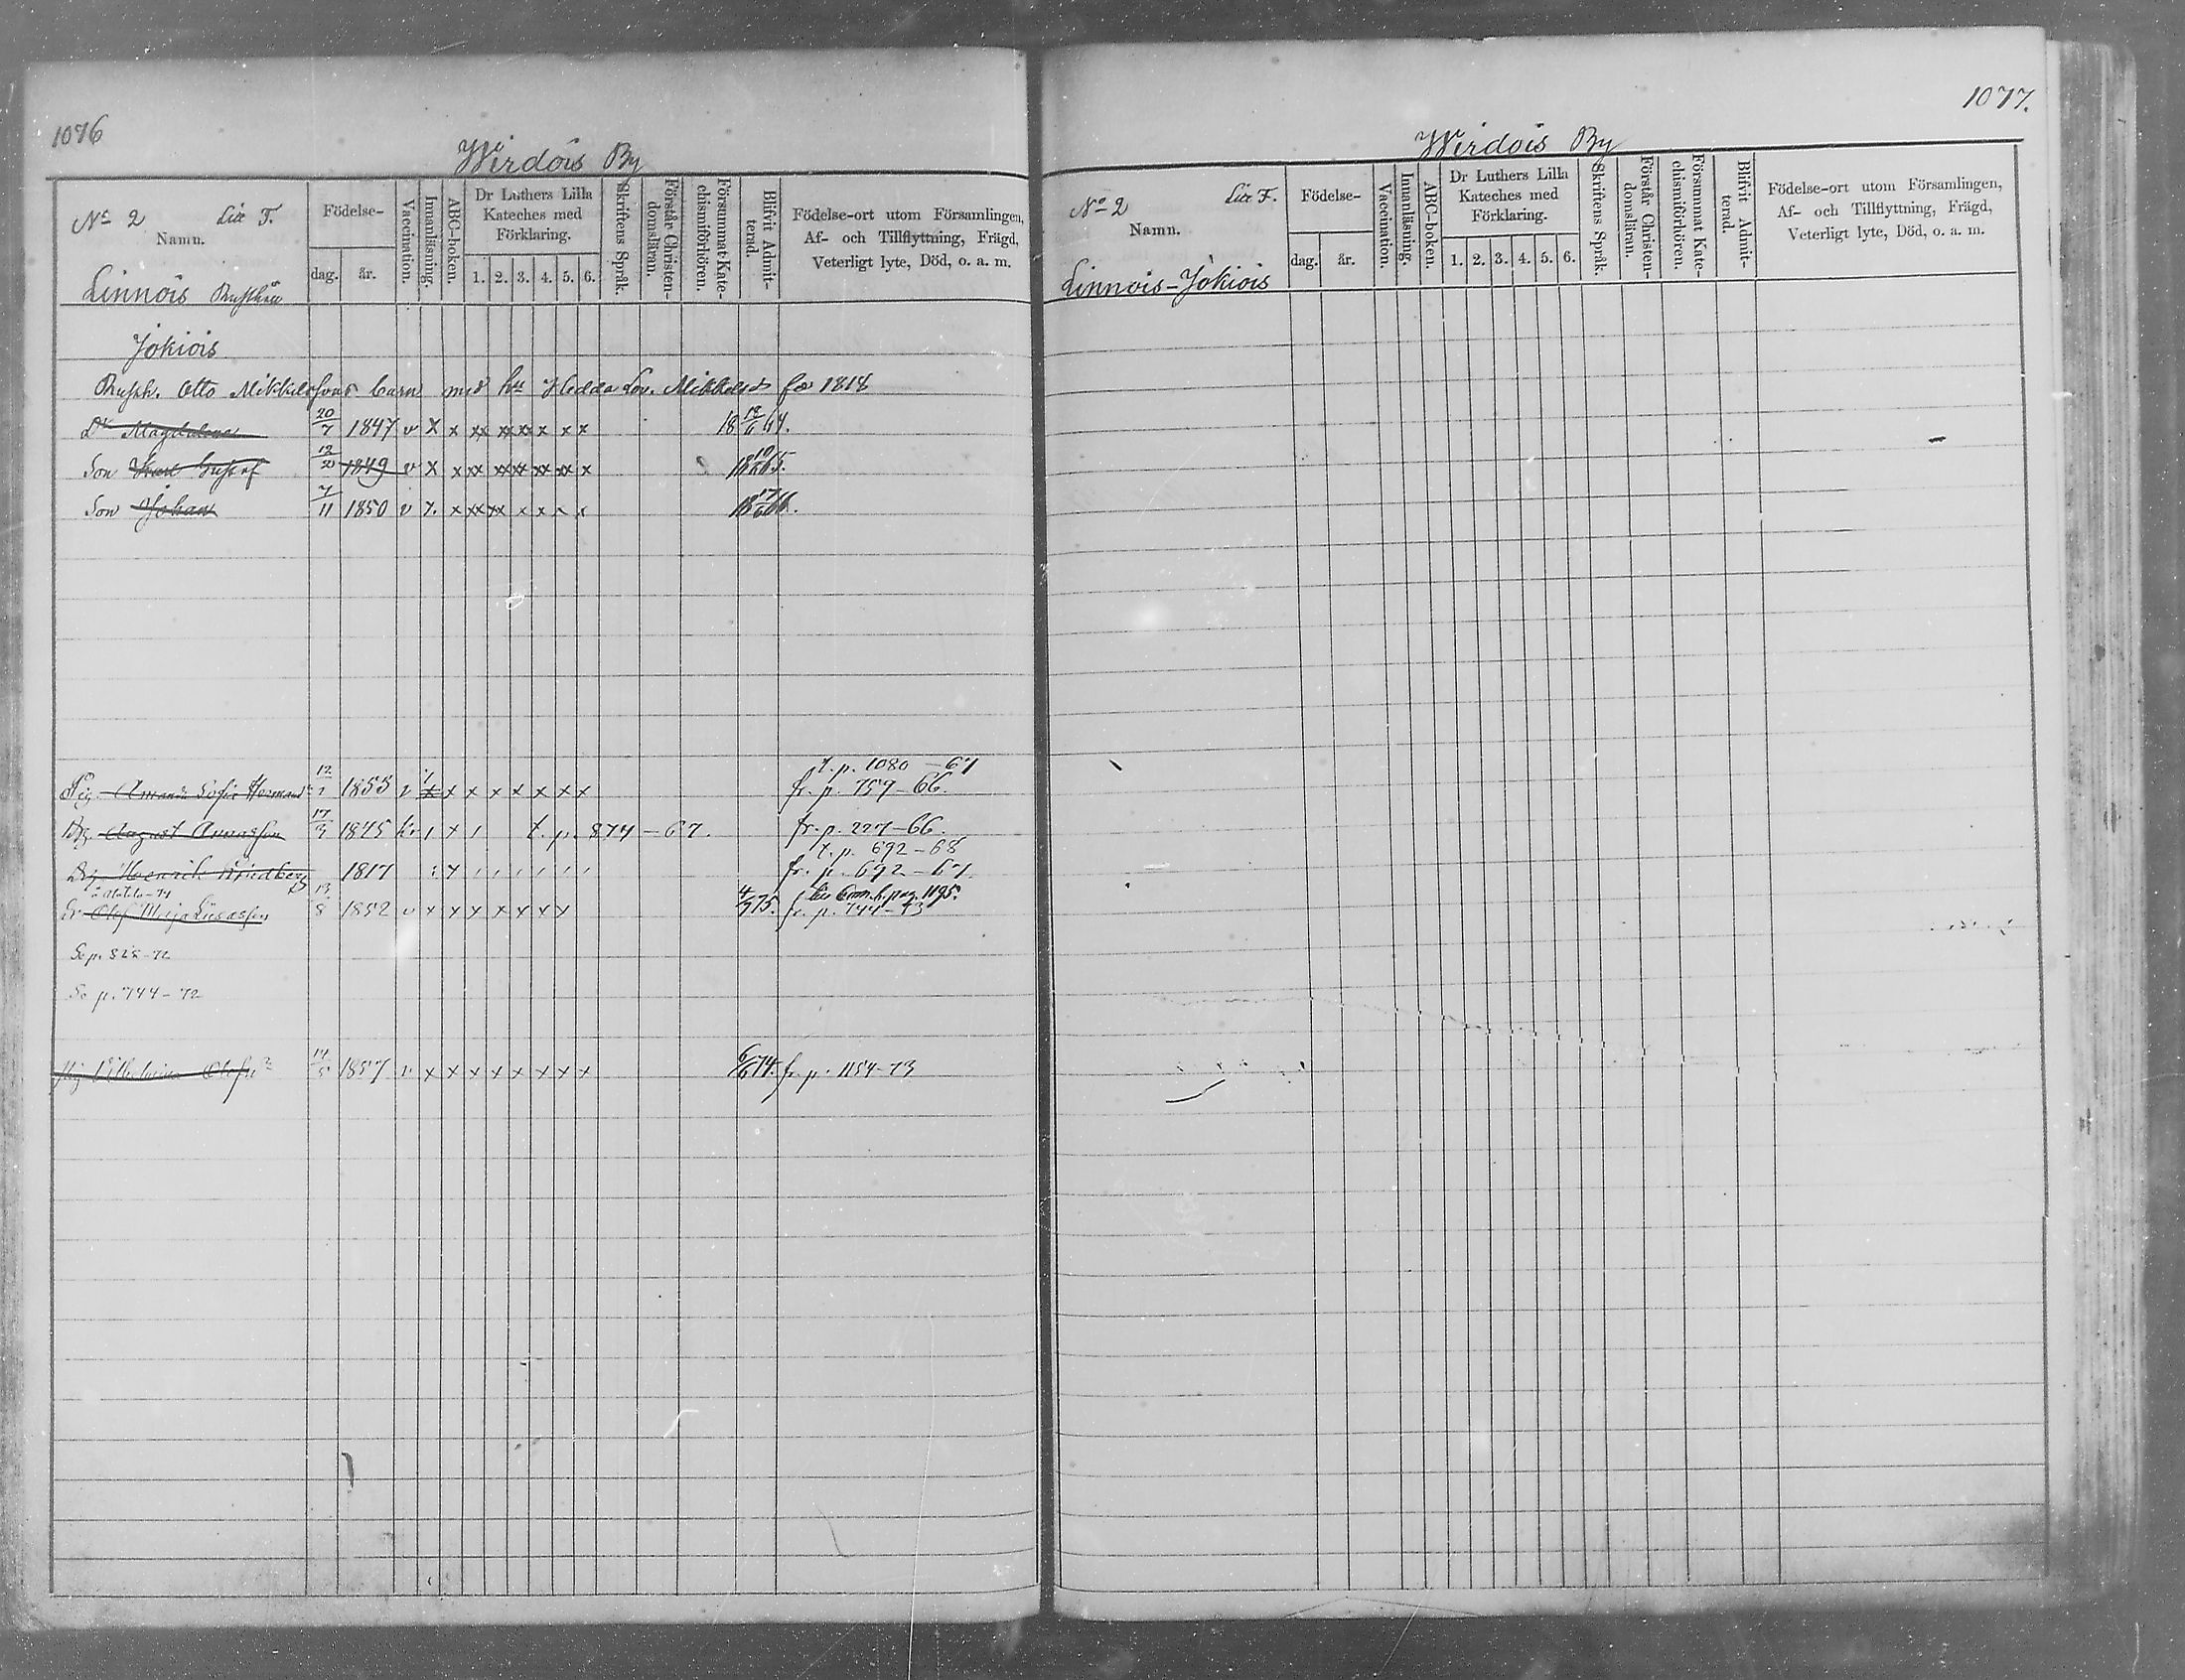 1076
Wirdois By
No 2 Litt F.
Namn.
Linnois Rusthåll
Födelse-
dag. år.
Vaccination.
Innanläsning.
ABC-boken.
Dr Luthers Lilla
Kateches med
Förklaring.
1. 2. 3. 4. 5. 6.
Skriftens Språk.
Förstår Christen-
domsläran.
Försummat Kate-
chismiförhören.
Blifvit Admit-
terad.
Födelse-ort utom Församlingen,
Af- och Tillflyttning, Frägd,
Veterligt lyte, Död, o. a. m.
Jokiois
Rusth. Otto Mikkelssons barn med hu Hedda Lov. Mikkelsd. 1818
Dr Magdalena 20/7 1847 v x x xx xx xx x x x 18 12/6 64.
Son Karl Gustaf 12/2 1849 v x x xx xx xx xx xx x 18 10/6 65.
Son Johan 7/11 1850 v x. x xx xx x x x x 18 17/6 66.
t. p. 1080 - 67
Pig. Amanda Sofia Hermansd 12/1 1855 v x x x x x x x x fr. p. 757-66.
Drg. August Annasson 17/9 1845 x t. p. 874-67. fr. p. 227-66.
t. p. 692-68
Drg Henrik Lindberg 1817 x fr. p. 692-67
Se Comm.b. pag. 1195.
Olof Maja Lisasson 13/8 1852 v x x x x x x x 4/7 75. fr. p. 744-73
Se p. 828-72
Se p. 744-72
Pig Vilhelmina Olofsdr 14/5 1857 v x x x x x x x x 6/6 74. fr. p. 1154-73
1077.
Wirdois By
No 2 Litt F.
Namn.
Linnois-Jokiois
Födelse-
dag. år.
Vaccination.
Innanläsning.
ABC-boken.
Dr Luthers Lilla
Kateches med
Förklaring.
1. 2. 3. 4. 5. 6.
Skriftens Språk.
Förstår Christen-
domsläran.
Försummat Kate-
chismiförhören.
Blifvit Admit-
terad.
Födelse-ort utom Församlingen,
Af- och Tillflyttning, Frägd,
Veterligt lyte, Död, o. a. m.